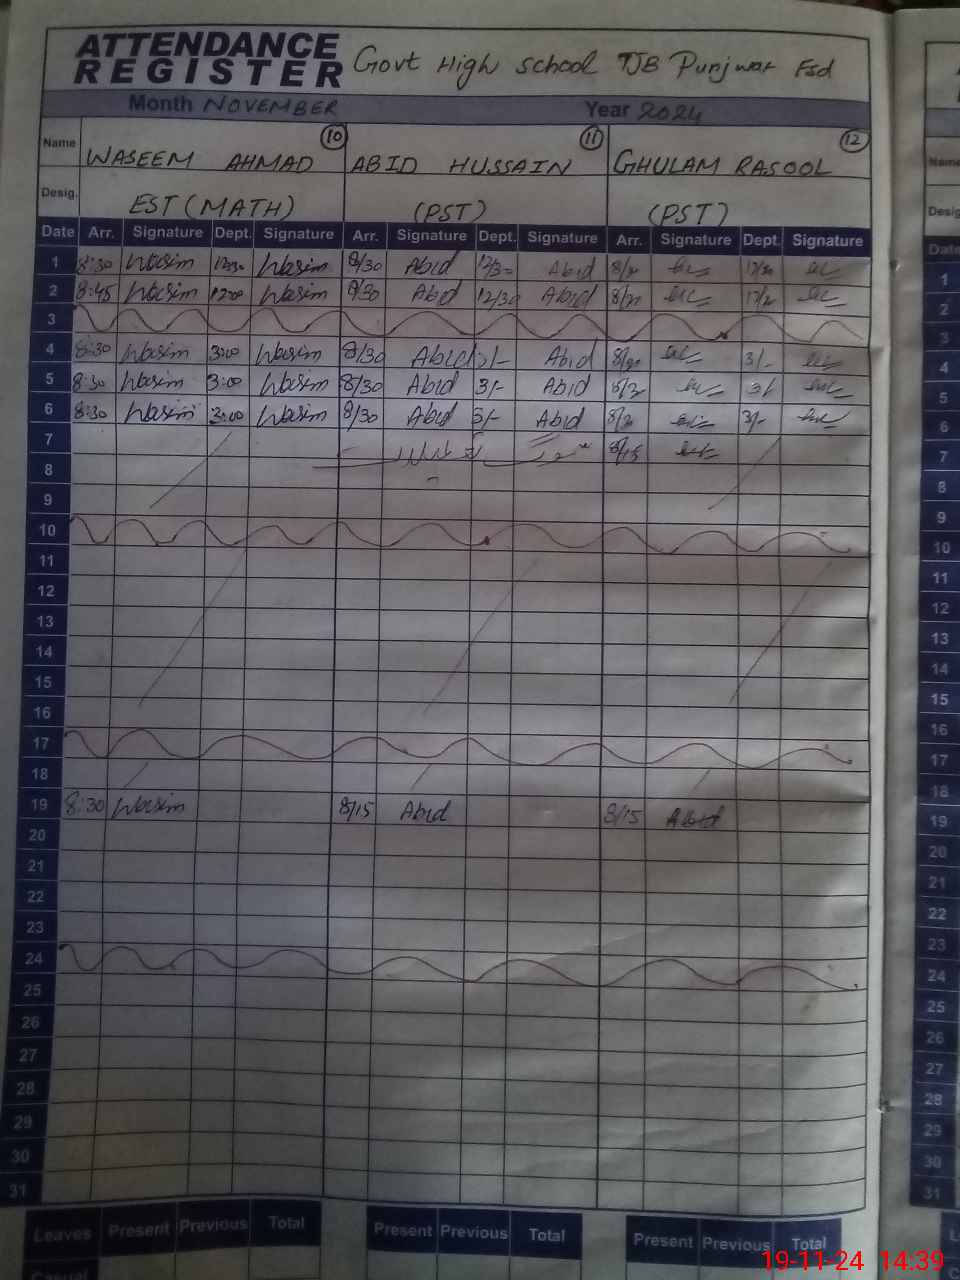 ATTENDANCE REGISTER Govt High School TJB Punjwar Fsd
Month NOVEMBER Year 2024
Name WASEEM AHMAD 10 ABID HUSSAIN 11 GHULAM RASOOL 12 Name
Desig. EST (MATH) (PST) (PST) Desig
Date Arr. Signature Dept. Signature Arr. Signature Dept. Signature Arr. Signature Dept. Signature Date
1 8:30 Wasim 12:30 Wasim 8/30 Abid Abid 1
2 8:45 Wasim 12:00 Wasim 8/30 Abid 12/30 Abid 2
3 3
4 8:30 Wasim 3:00 Wasim 8/30 Abid 3/- Abid 3/- 4
5 8:30 Wasim 3:00 Wasim 8/30 Abid 3/- Abid 3/ 5
6 8:30 Wasim 3:00 Wasim 8/30 Abid 3/- Abid 3/- 6
7 8/15 7
8 8
9 9
10 10
11 11
12 12
13 13
14 14
15 15
16 16
17 17
18 18
19 8:30 Wasim 8/15 Abid 8/15 Abid 19
20 20
21 21
22 22
23 23
24 24
25 25
26 26
27 27
28 28
29 29
30 30
31 31
Leaves Present Previous Total Present Previous Total Present Previous Total
Casual
19-11-24 14:39